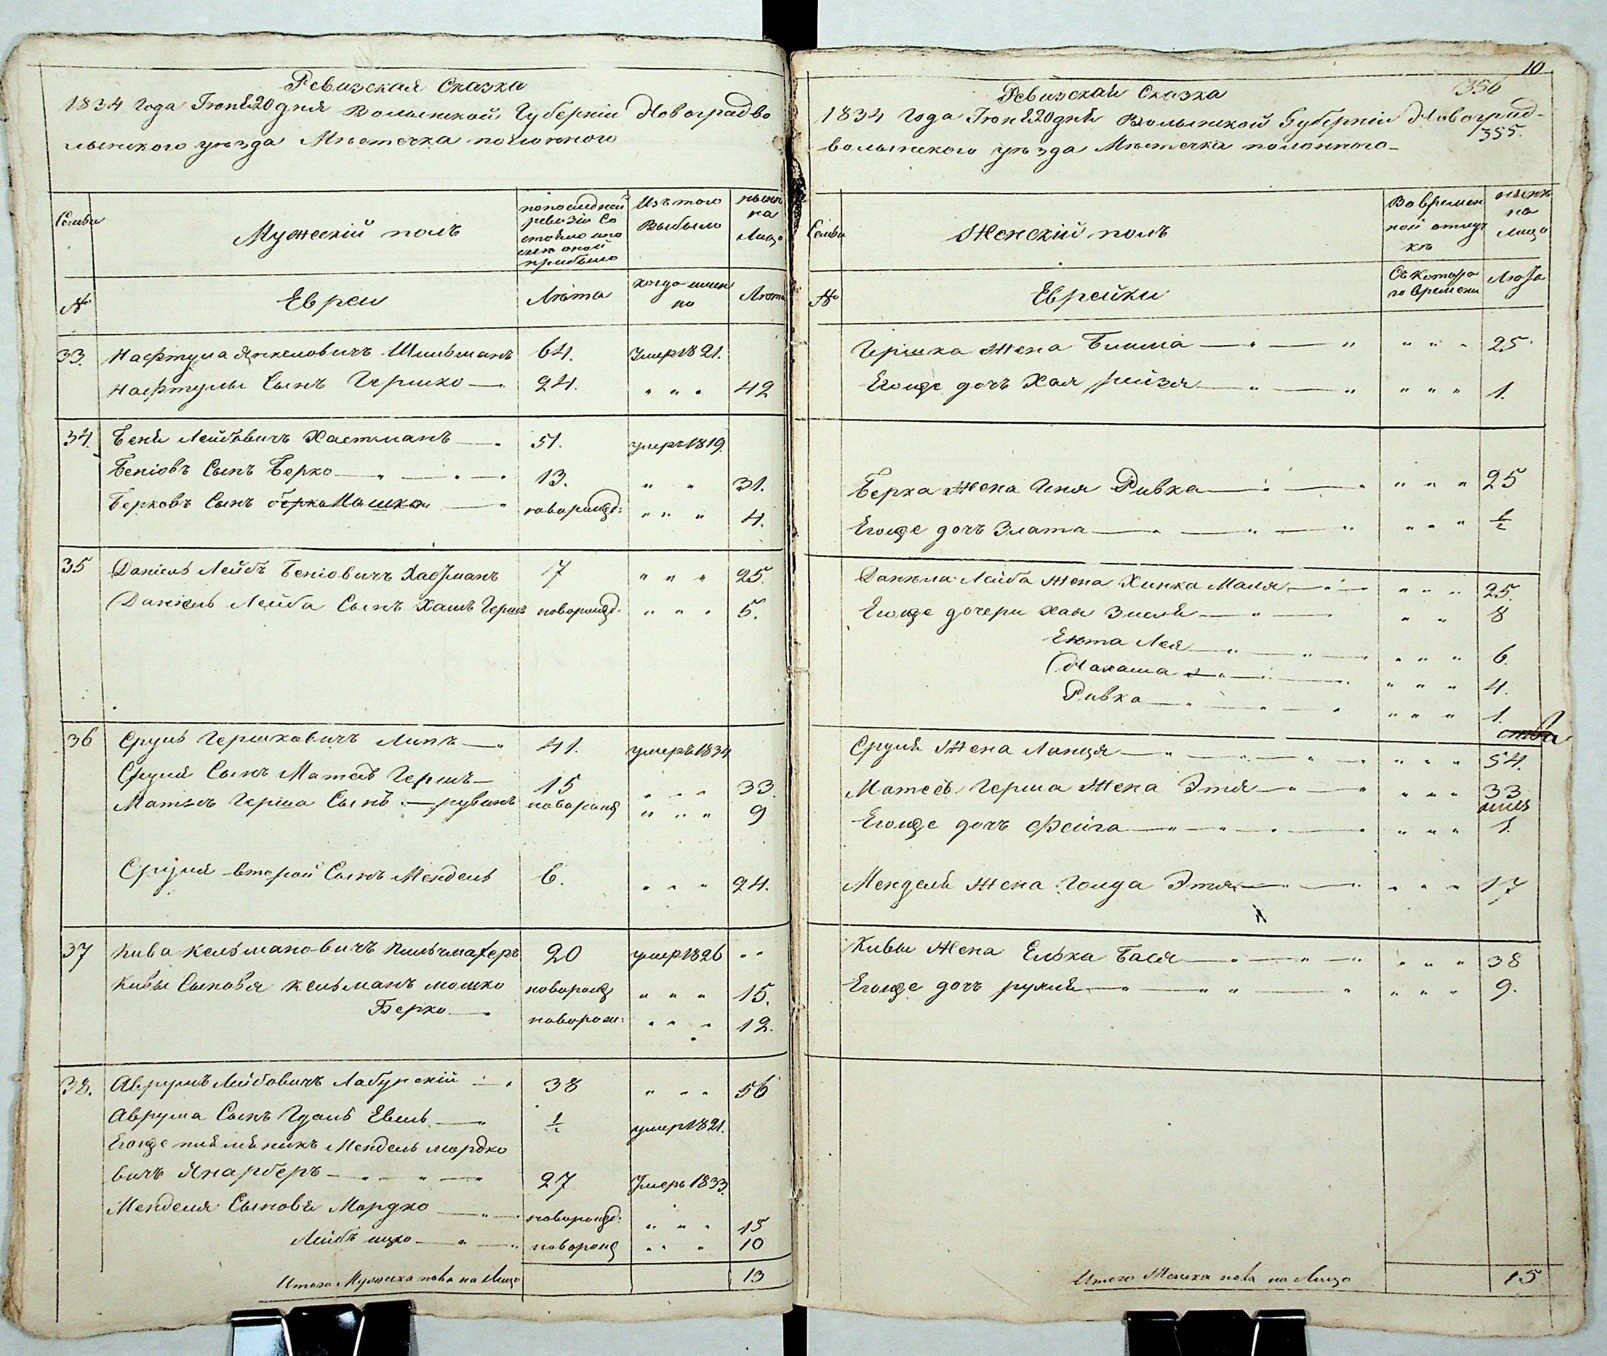 Ревизская Сказка
1834 года Іюня 20 дня Волынской Губерніи Новоградво
лынского уезда Местечка полонного
Семьи
Мужескій полъ
попоследней ревизіи Со стояло и по сле оной прибыло
Изъ того Выбыло
ныне на Лицо
№
Евреи
Лѣта
когда имен но
Лѣта
33. Нафтула Янкелевичъ Шильманъ 64. Умеръ 1821.
Нафтулы Сынъ Гершко 24. " " " 42
34. Беня Лейбовичъ Хастманъ 51. умеръ 1819.
Беніовъ Сынъ Берко 13. " " 31.
Берковъ Сынъ Мошко новорожд: " " " 4.
35 Даніель Лейбъ Беніовичъ 7 " " " 25.
Даніель Лейба Сынъ Хаимъ Гершъ новорожд. " " " 5.
36 Сруль Гершковичъ Липъ 41. умеръ 1834
Сруля Сынъ Матесъ Гершъ 15 " " " 33.
Матесъ Герша Сынъ рувинъ новорожд " " " 9
Сруля второй Сынъ Мендель 6. " " " 24.
37 Кива Кельмановичъ 20 умеръ 1826 " "
Кивы Сыновья Кельманъ мошко новорожд " " " 15.
Берко новорож: " " " 12.
38. Аврумъ Лейбовичъ Лабунскій 38 " " " 56
Аврума Сынъ Гдаль Евель 1/2 умеръ 1821.
Егожъ племѣникъ Мендель мордко
вичъ 27 Умеръ 1833.
Менделя Сыновья Мордко новорожд: " " " 15
Лейбъ ицко новорожд " " " 10
Итого Мужеска пола на Лицо 13
10
356
Ревизская Сказка
1834 года Іюня 20 дня Волынской Губерніи Новоград-
355.
волынского уезда Местечка полонного
Семьи
Женскій полъ
Во времен ной отлуч кѣ
ныне на Лицо
№
Еврейки
Съ котора го времени
Лѣта
Гершка Жена Бишма " " " 25.
Егожъ дочь Хая рейзя " " " 1.
Берка Жена Ципя Ривка " " " 25
Егожъ дочь Злата " " " 1/2
Даніела Лейба Жена Хинка Маля " " " 25.
Егожъ дочери Хая Зисля " " 8
Ента Лея " " " 6.
Махаша " " " 4.
Ривка " " " 1.
Сруля Жена " " " 54.
Матесъ Герша Жена Этля " " " 33
Егожъ дочь Фейга " " " 1.
Менделя Жена Голда Этля " " " 17
Кивы Жена Елька Бася " " " 38
Егожъ дочь рухля " " " 9.
Итого Женска пола на Лицо 15